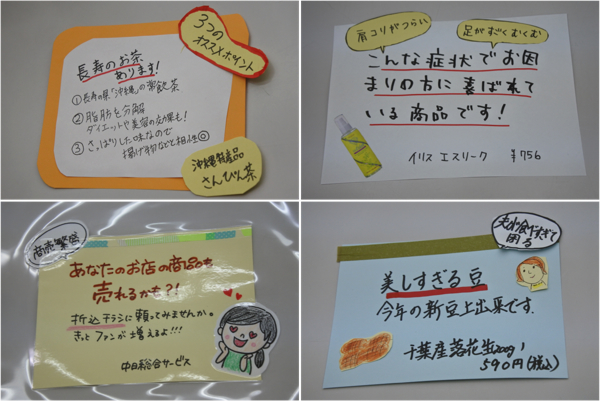 3つの
オススメポイント
長寿のお茶
あります!
①長寿の県「沖縄」の常飲茶
②脂肪を分解
ダイエットや美容の効果も!
③さっぱりした味なので
揚げ物などと相性◎
沖縄特産品
さんぴん茶
肩コリがつらい
足がすごくむくむ
こんな症状でお困
まりの方に喜ばれて
いる商品です!
イリス エスリーク ¥756
商売繁盛
あなたのお店の商品も
売れるかも?!
折込チラシに頼ってみませんか。
きっとファンが増えるよ!!!
中日総合サービス
夫が食べすぎて
困る
美しすぎる豆
今年の新豆上出来です.
千葉産落花生200g
590円(税込)